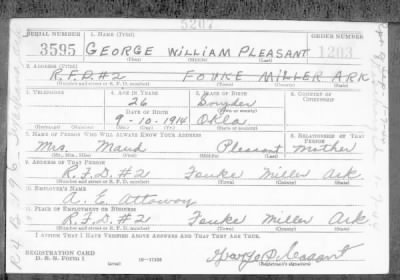 5207
SERIAL NUMBER 1. NAME (Print) ORDER NUMBER
3595 GEORGE WILLIAM PLEASANT 1203
(First) (Middle) (Last)
2. ADDRESS (Print)
R.F.D.#2 FOUKE MILLER ARK
(Number and street or R. F. D. number) (Town) (County) (State)
3. TELEPHONE 4. AGE IN YEARS 5. PLACE OF BIRTH 6. COUNTRY OF CITIZENSHIP
26
DATE OF BIRTH (Town or county)
9-10-1914 Okla.
(Exchange) (Number) (Mo.) (Day) (Yr.) (State or country)
7. NAME OF PERSON WHO WILL ALWAYS KNOW YOUR ADDRESS 8. RELATIONSHIP OF THAT PERSON
Mrs. Maud Pleasant Mother
(Mr., Mrs., Miss) (First) (Middle) (Last)
9. ADDRESS OF THAT PERSON
R.F.D.#2 Fouke Miller Ark
(Number and street or R. F. D. number) (Town) (County) (State)
10. EMPLOYER'S NAME
A. E. Attaway
11. PLACE OF EMPLOYMENT OR BUSINESS
R.F.D.#2 Fouke Miller Ark
(Number and street or R. F. D. number) (Town) (County) (State)
I AFFIRM THAT I HAVE VERIFIED ABOVE ANSWERS AND THAT THEY ARE TRUE.
REGISTRATION CARD
D. S. S. Form 1 (over) 16-17105 George Pleasant
(Registrant's signature)